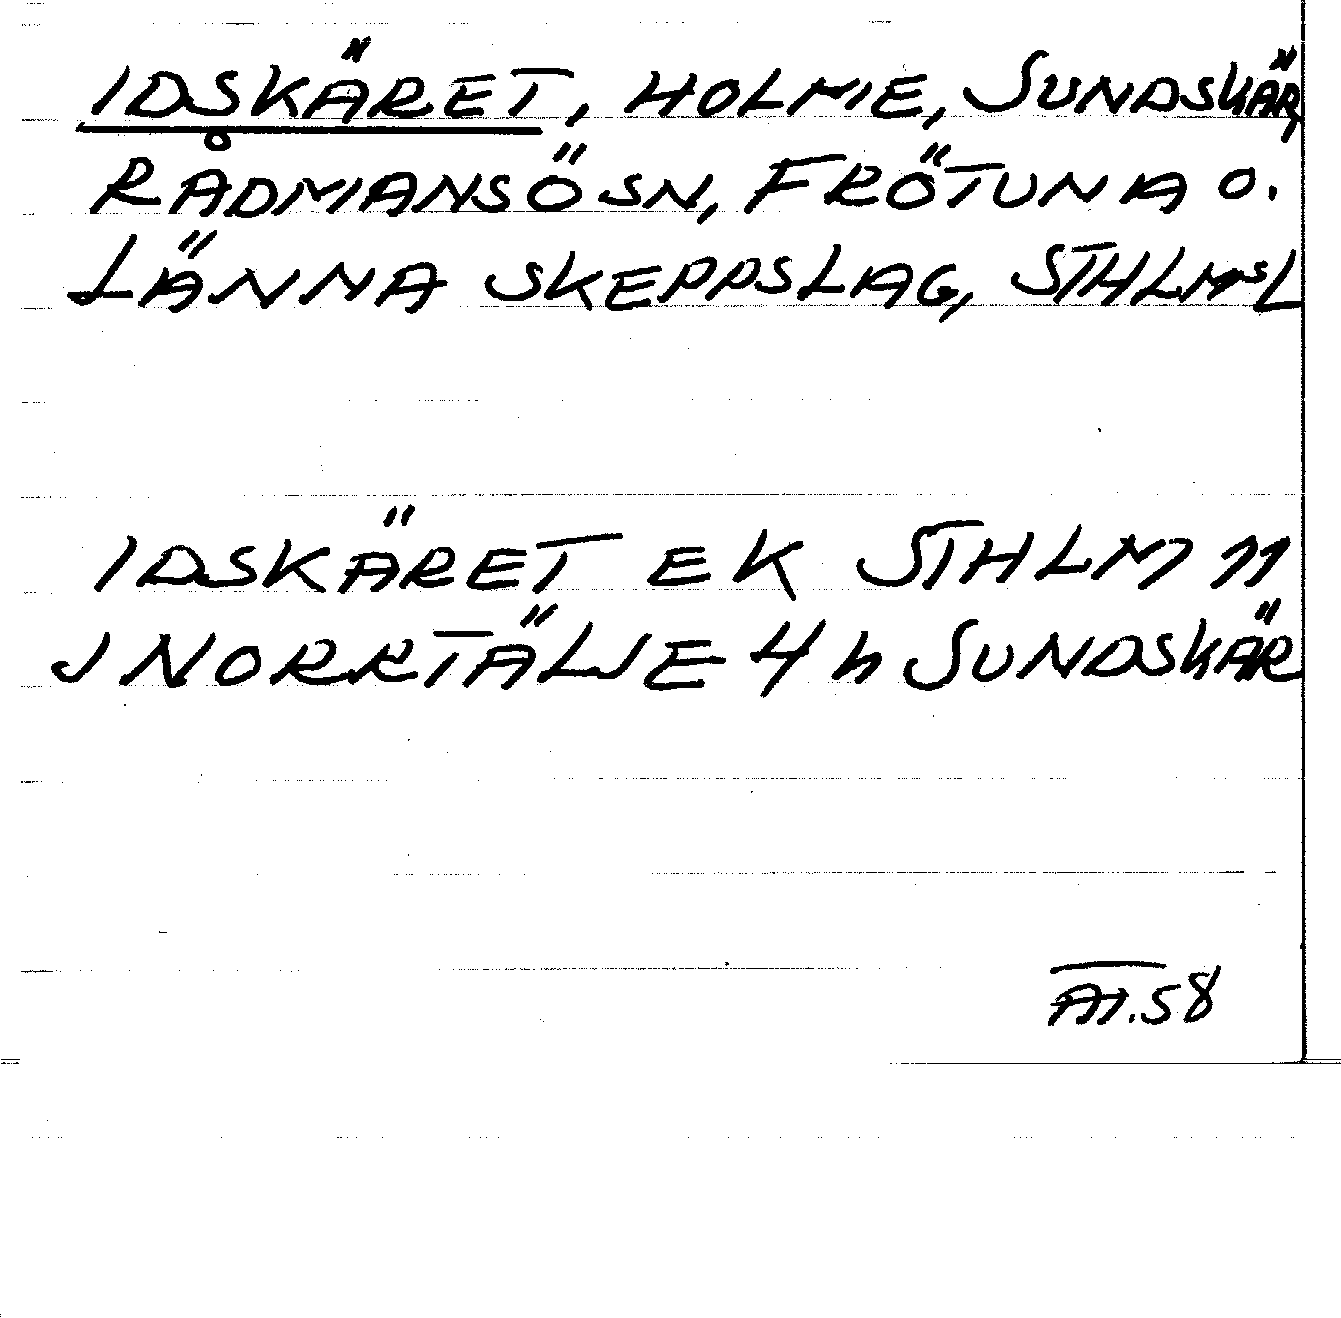 IDSKÄRET, HOLME, SUNDSKÄR,
RÅDMANSÖ SN, FRÖTUNA O.
LÄNNA SKEPPSLAG, STHLMSL
IDSKÄRET EK STHLM 11
J NORRTÄLJE 4 h SUNDSKÄR
AT.58